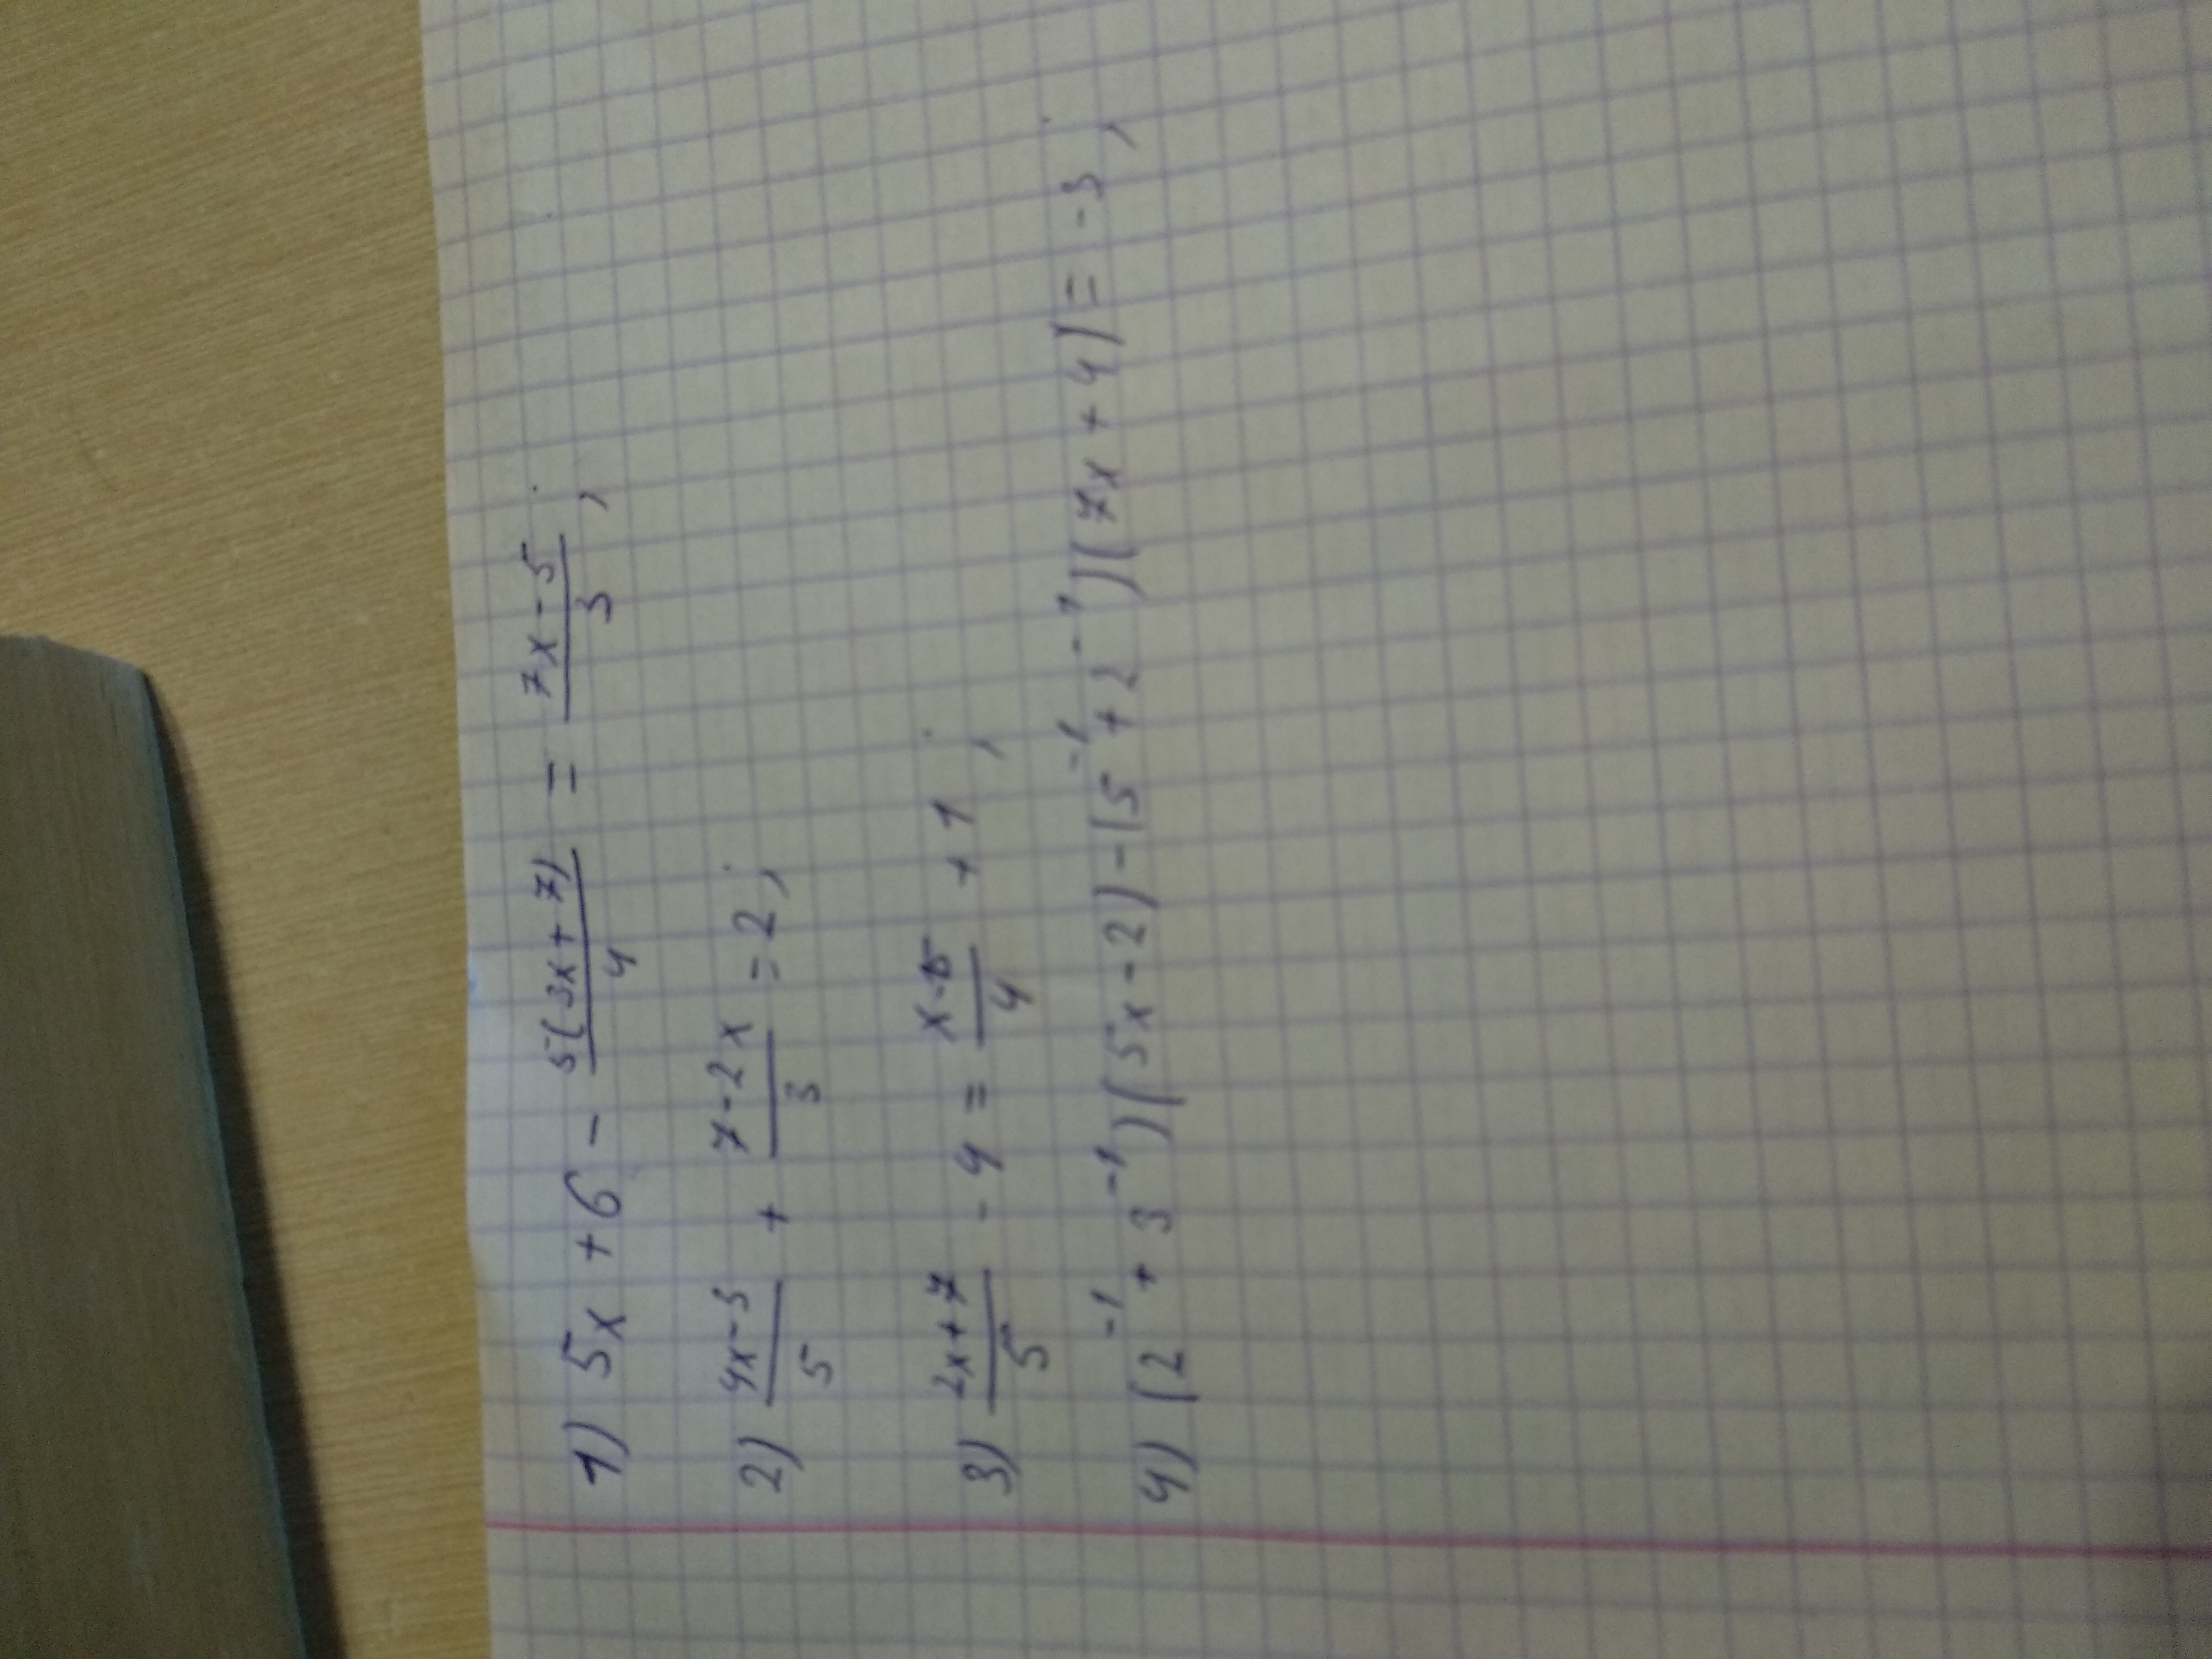 1) 5x + 6 - 5(3x+7)/4 = 7x-5/3 ;
2) 4x-3/5 + 7-2x/3 = 2 ;
3) 2x+7/5 - 4 = x-5/4 + 1 ;
4) (2⁻¹ + 3⁻¹)(5x-2) - (5⁻¹ + 2⁻¹)(7x+4) = -3 ;